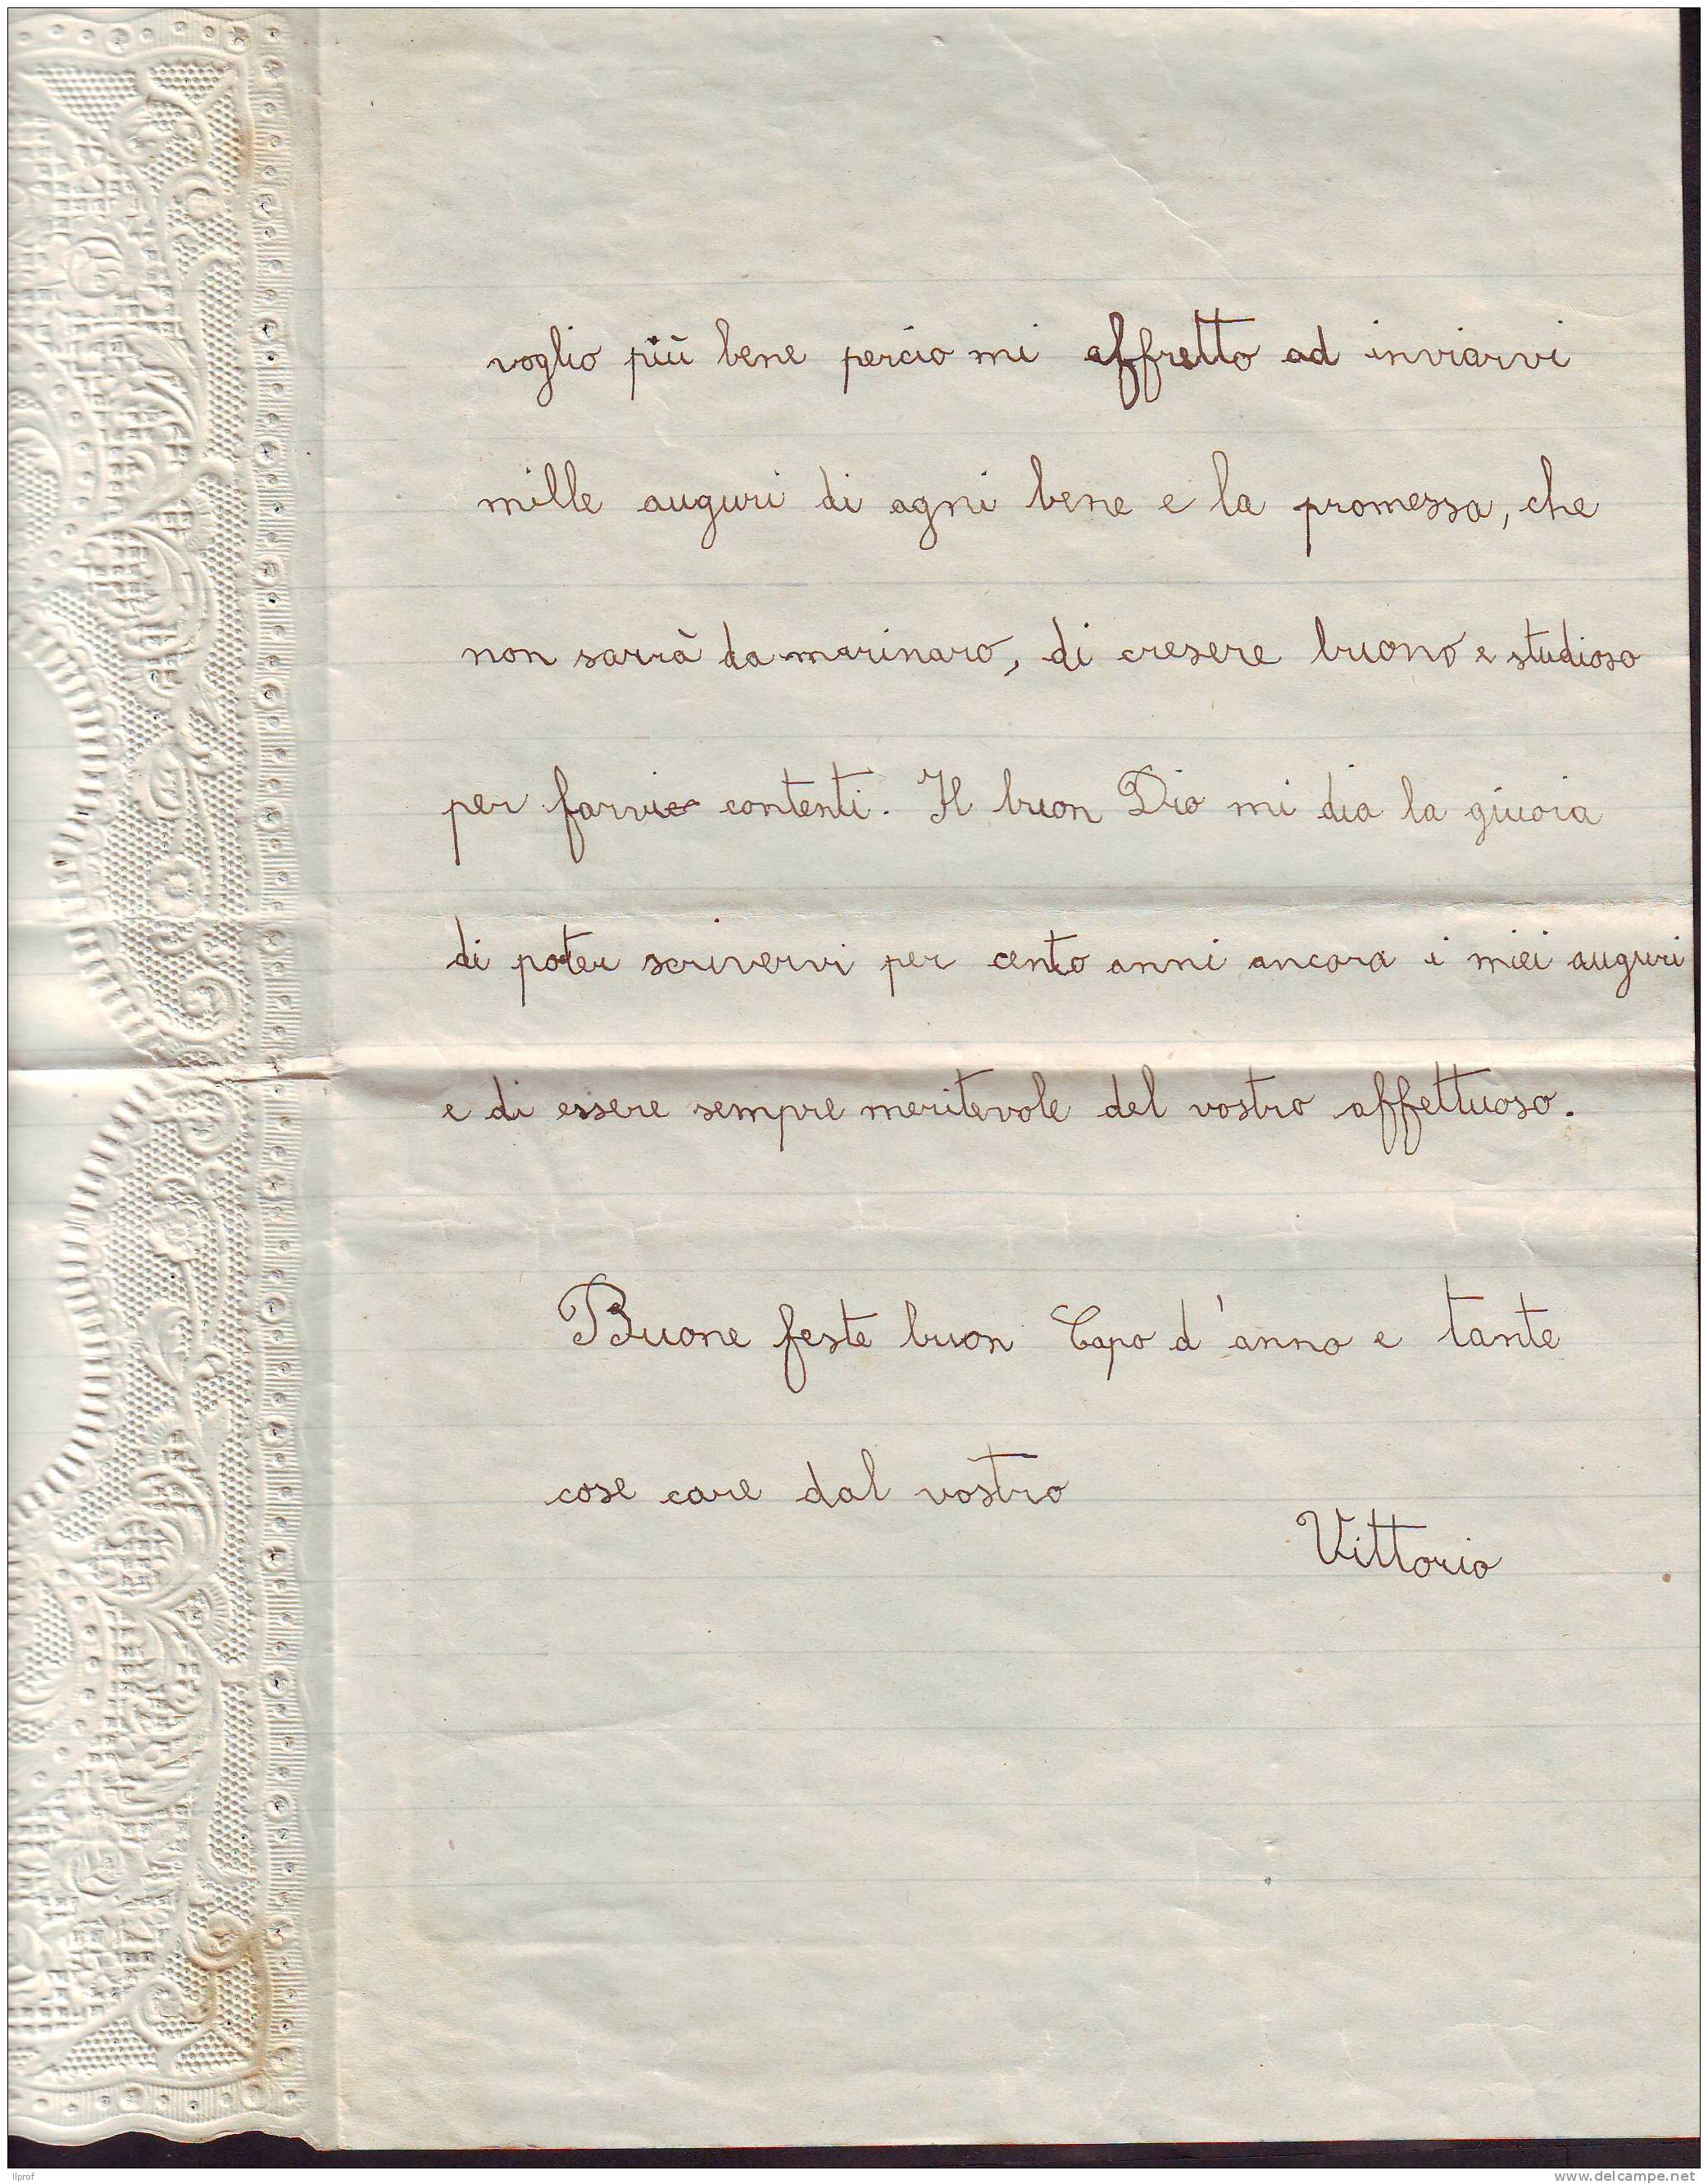 voglio più bene percio mi affretto ad inviarvi
mille auguri di agni bene e la promessa, che
non sarrà da marinaro, di cresere buono e studioso
per farvi contenti. Il buon Dio mi dia la giuoia
di poter scrivervi per cento anni ancora i miei auguri
e di essere sempre meritevole del vostro affettuoso.
Buone feste buon Capo d'anno e tante
cose care dal vostro
Vittorio
ilprof
www.delcampe.net